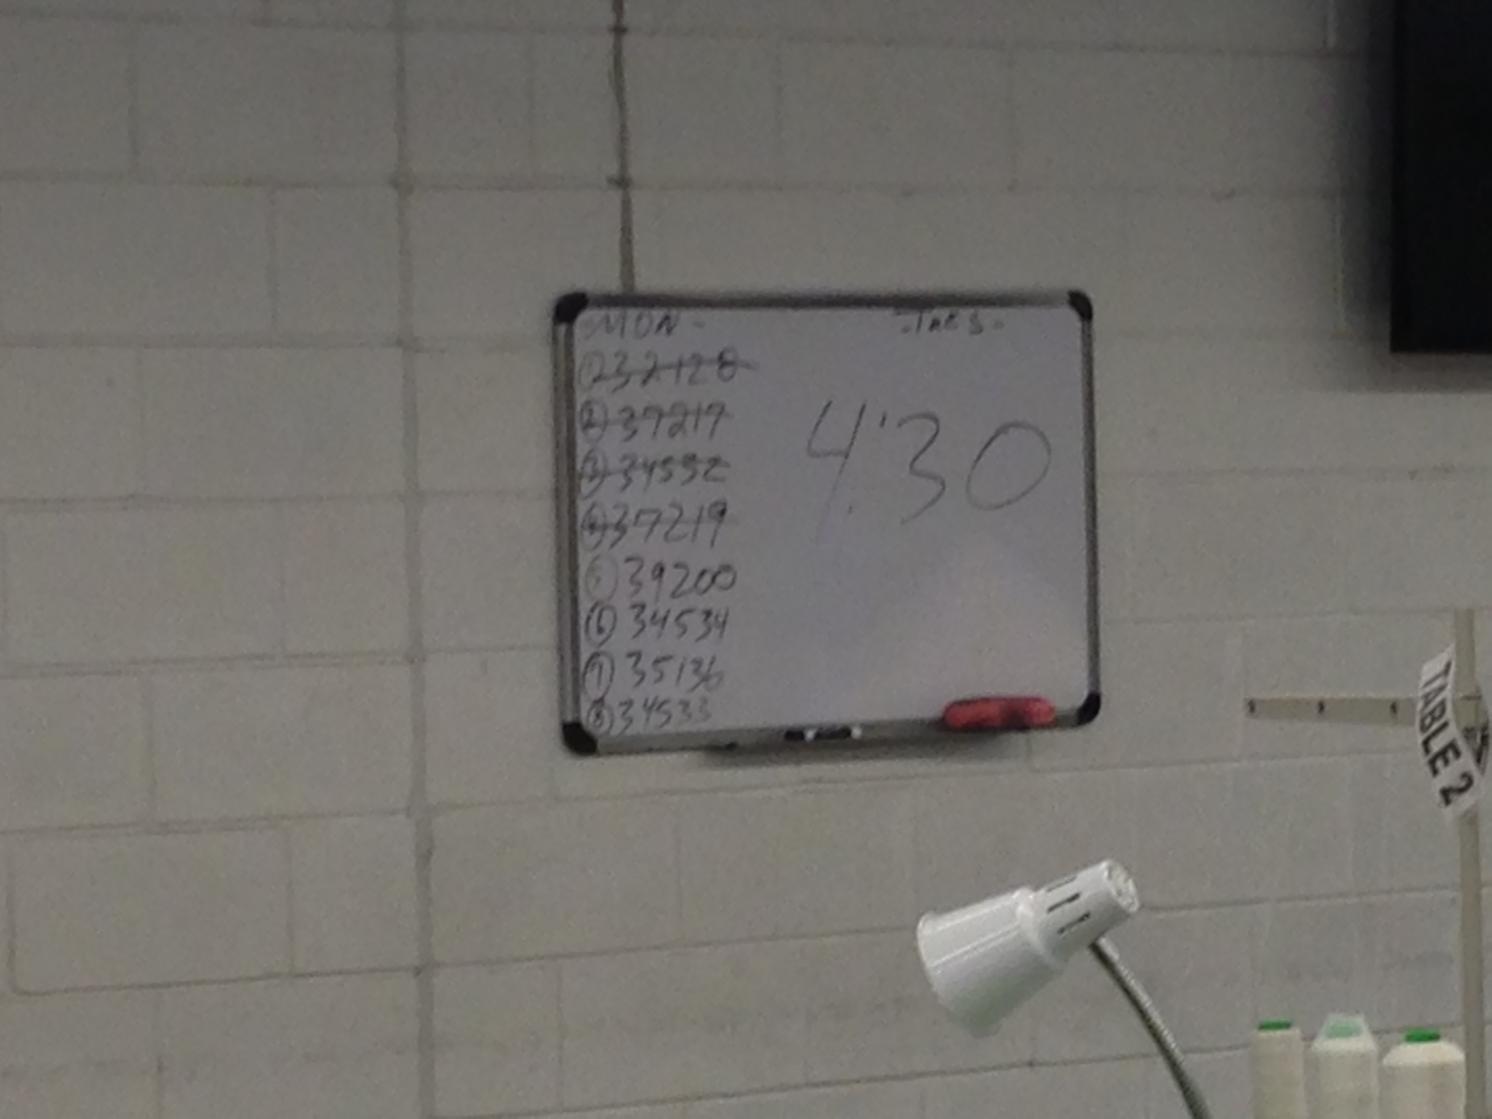 -MON- -TUES-
① 32128
② 37217
③ 34532
④ 37219
⑤ 39200
⑥ 34534
⑦ 35136
⑧ 34533
4:30
TABLE 2